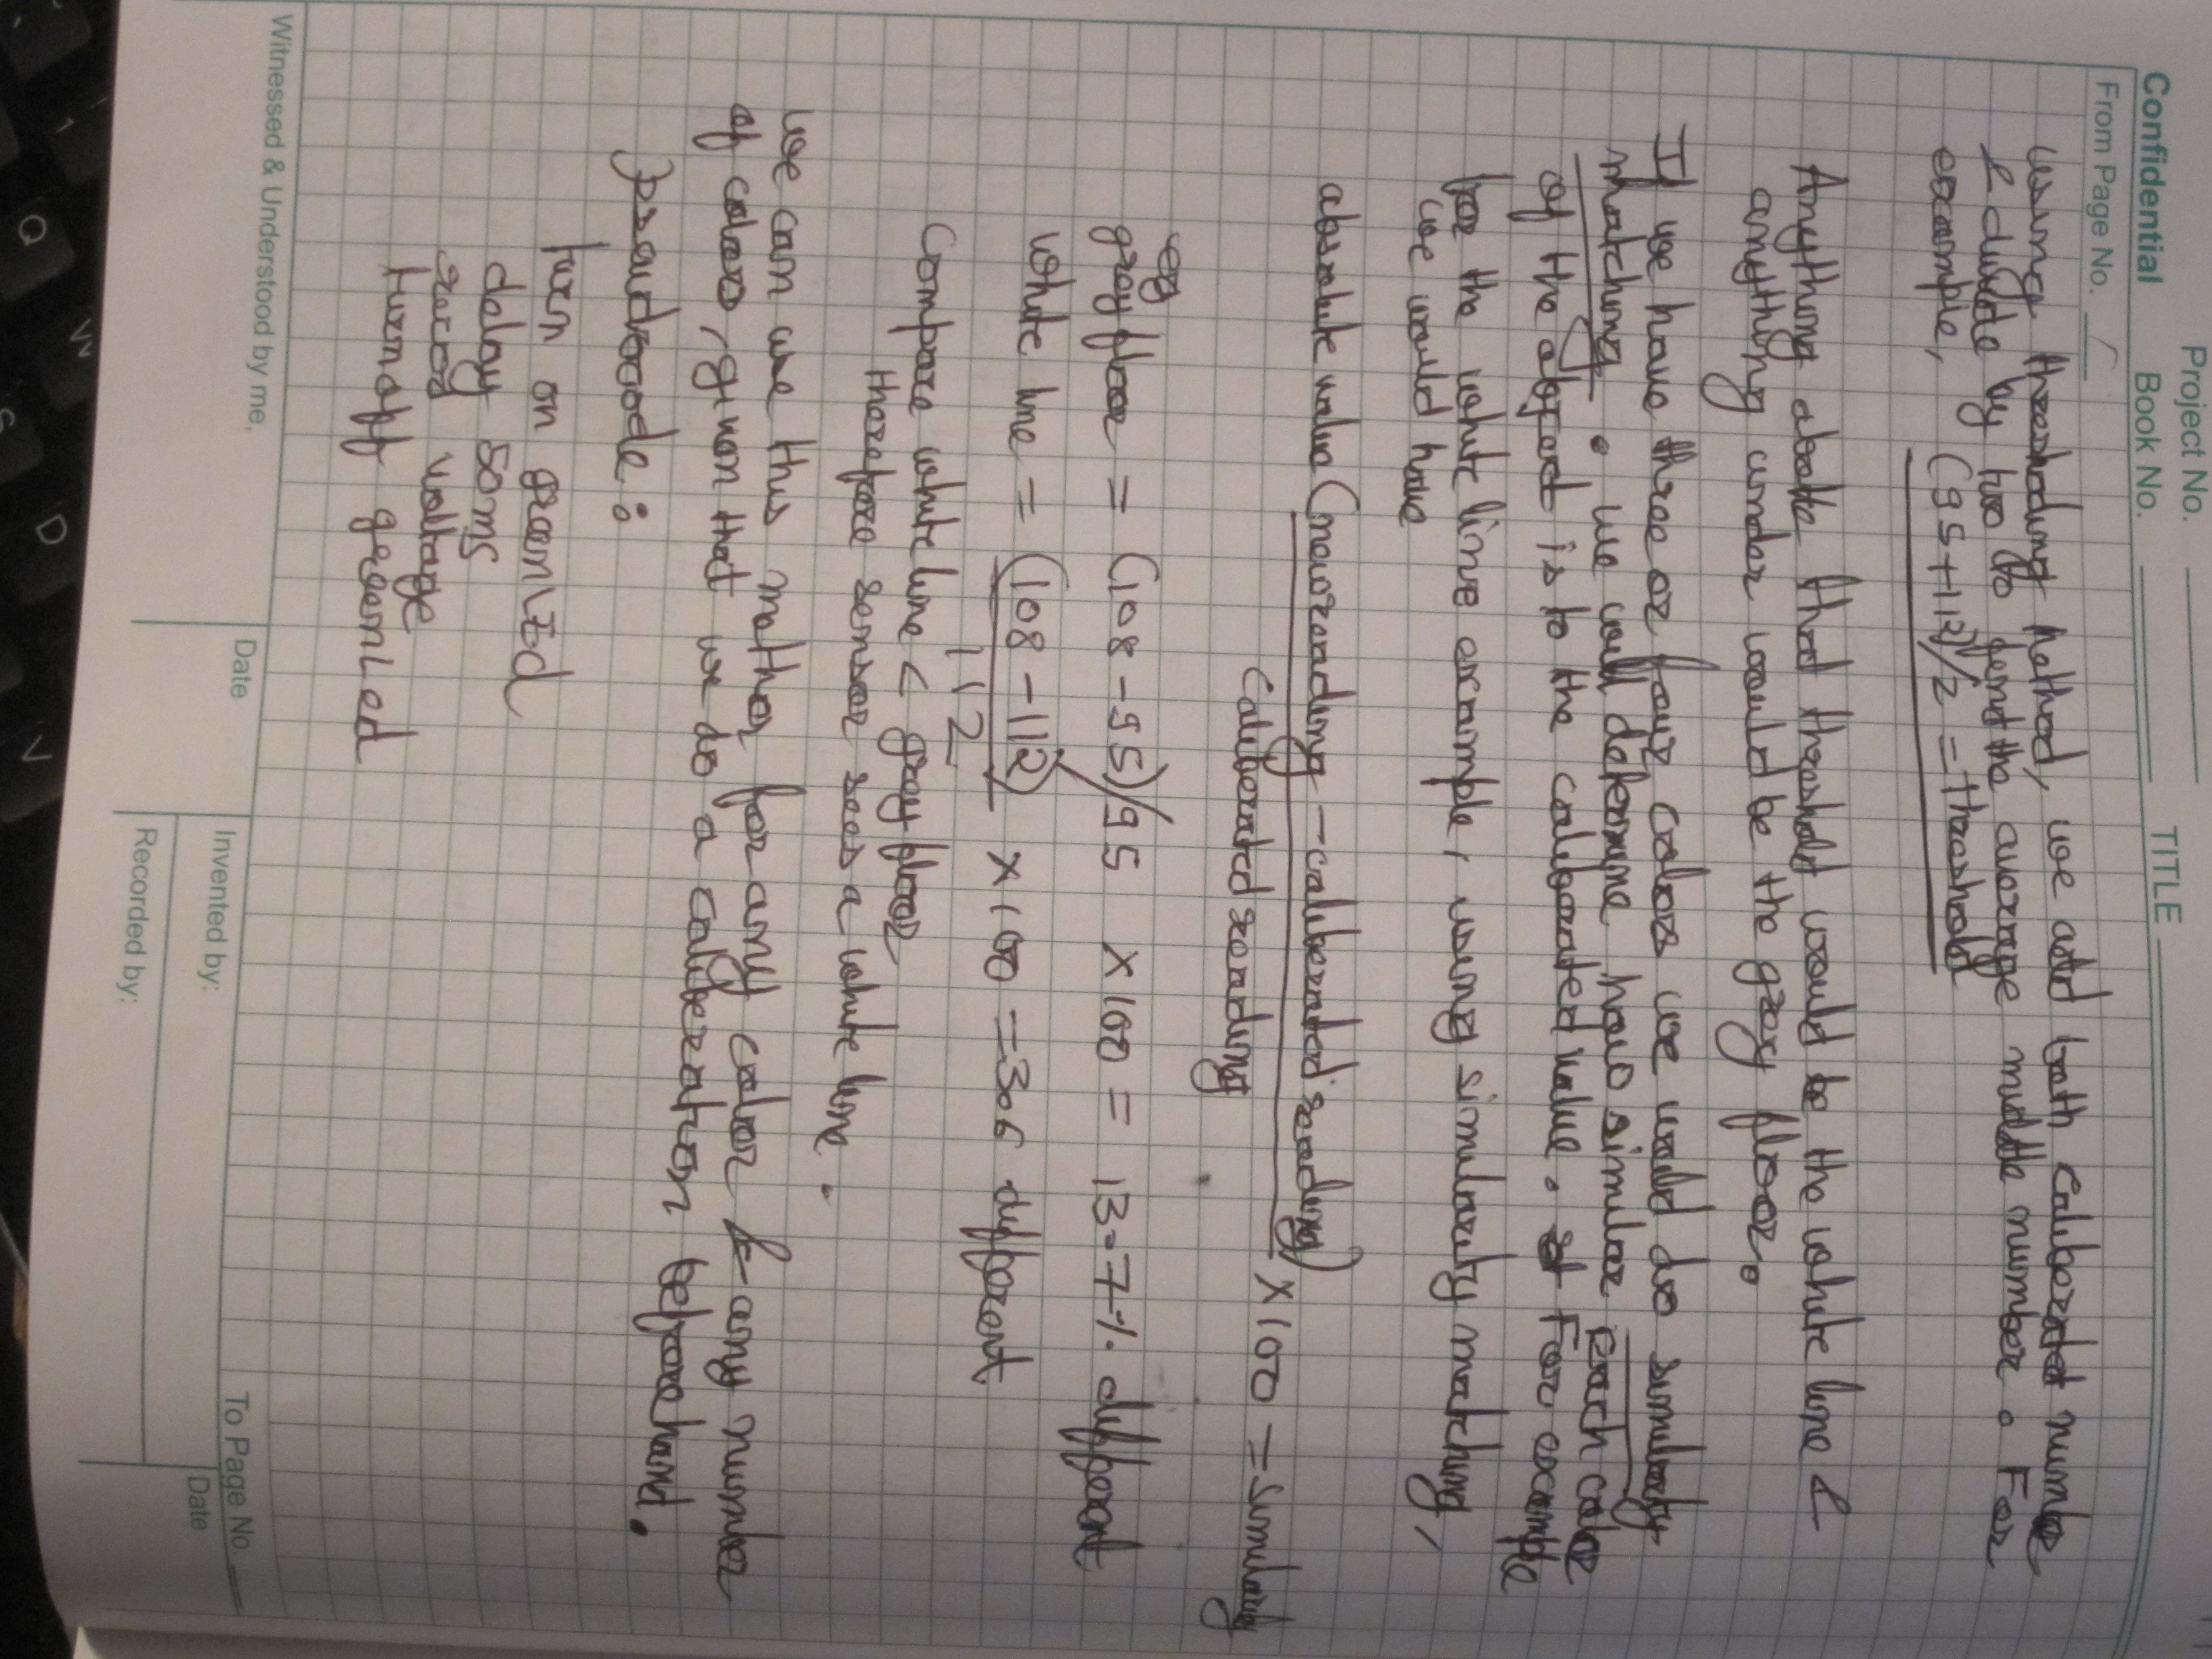 Project No.
Confidential Book No. TITLE
From Page No.
using thresholding Method, we add both caliberated number
& divide by two to find the average middle number. For
example, (95+112)/2 = threshold
Anything above that threshold would be the white line &
anything under would be the gray floor.
If we have three or four colors we would do similarity
matching. we will determine how similar each color
of the object is to the caliberated value. For example
for the white line example, using similarity matching,
we would have
absolute value (new reading - caliberated reading) x 100 = similarity
caliberated reading
eg
gray floor = (108-95)/95 x 100 = 13.7% different
white line = (108-112) x 100 = 3.6 different
112
Compare white line < gray floor
therefore sensor sees a white line.
we can use this method for any color & any number
of colors, given that we do a caliberation beforehand.
pseudocode:
turn on green LEd
delay 50ms
record voltage
turn off green Led
Witnessed & Understood by me, Date Invented by: Date To Page No.
Recorded by:
V D W Q